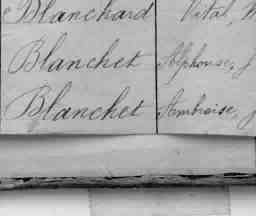 Blanchard Vital,
Blanchet Alphonse, J
Blanchet Ambroise, J